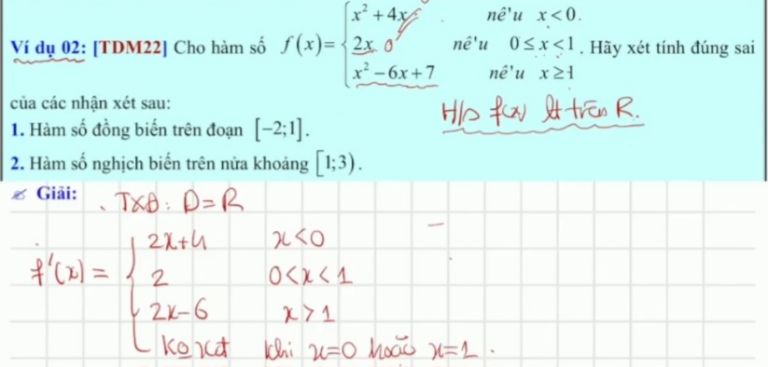 Ví dụ 02: [TDM22] Cho hàm số f(x)= { x² + 4x nê'u x < 0.
2x 0 nê'u 0 ≤ x < 1 . Hãy xét tính đúng sai
x² − 6x + 7 nê'u x ≥ 1
của các nhận xét sau:
H/s f(x) lt trên R.
1. Hàm số đồng biến trên đoạn [−2;1].
2. Hàm số nghịch biến trên nửa khoảng [1;3).
Giải:
. TXĐ: D=R
f'(x) = { 2x+4 x<0
2 0<x<1
2x-6 x>1
Ko xđ khi x=0 hoặc x=1.